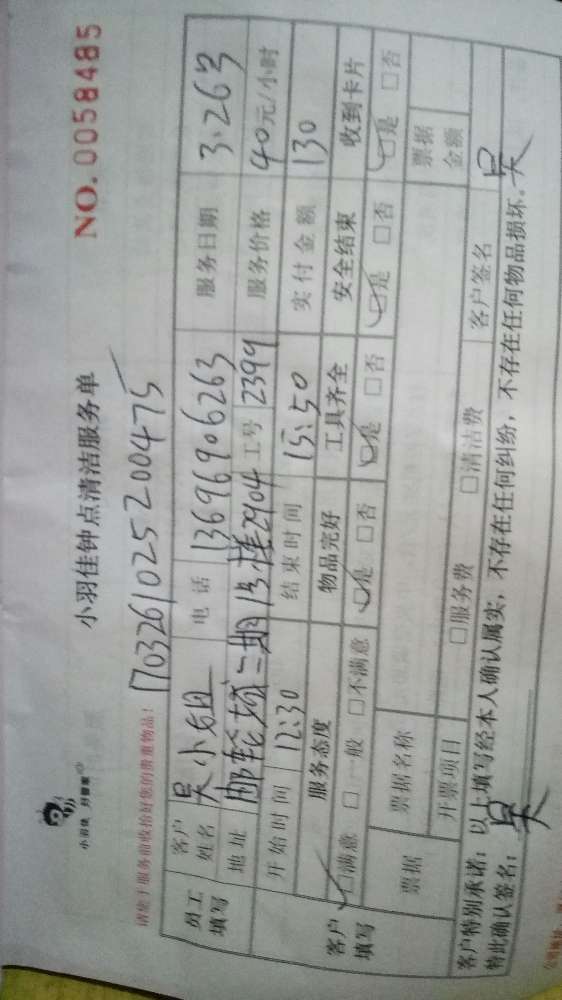 小羽佳 好管家
小羽佳钟点清洁服务单
NO. 0058485
请您于服务前收拾好您的贵重物品!
17032610252004 75
员工填写 客户姓名 吴小姐 电话 13696906263 服务日期 3.26号
地址 邮轮城二期13幢2904 工号 2399 服务价格 40元/小时
开始时间 12:30 结束时间 15:50 实付金额 130
客户填写 服务态度 物品完好 工具齐全 安全结束 收到卡片
☑满意 □一般 □不满意 ☑是 □否 ☑是 □否 ☑是 □否 ☑是 □否
票据 票据名称 票据金额
开票项目 □服务费 □清洁费 客户签名 吴
客户特别承诺:以上填写经本人确认属实,不存在任何纠纷,不存在任何物品损坏。吴
特此确认签名: 吴